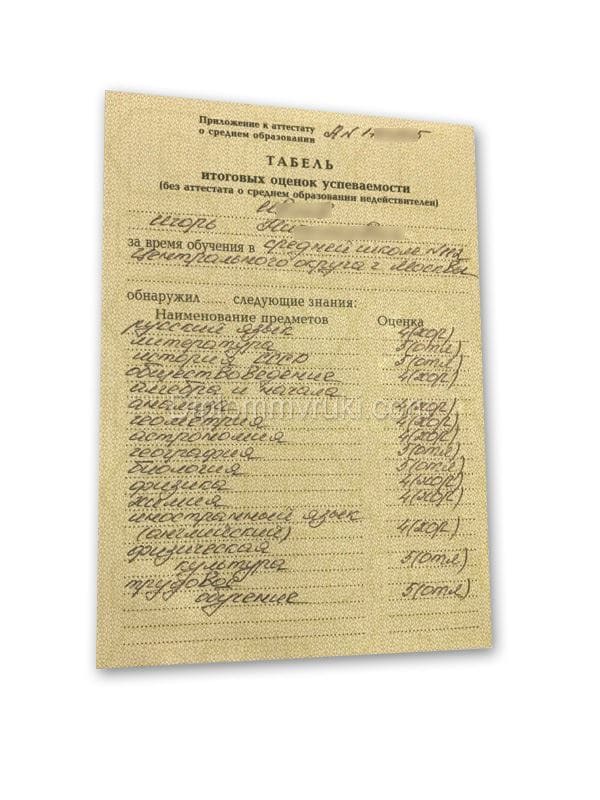 Приложение к аттестату
о среднем образовании
ТАБЕЛЬ
итоговых оценок успеваемости
(без аттестата о среднем образовании недействителен)
Игорь
за время обучения в средней школе №
Центрального округа г. Москвы
обнаружил ..... следующие знания:
Наименование предметов Оценка
русский язык 4(хор)
литература 5(отл)
история СССР 5(отл)
обществоведение 4(хор)
алгебра и начала
анализа 4(хор)
геометрия 4(хор)
астрономия 4(хор)
география 5(отл)
биология 5(отл)
физика 4(хор)
химия 4(хор)
иностранный язык
(английский) 4(хор)
физическая
культура 5(отл)
трудовое
обучение 5(отл)